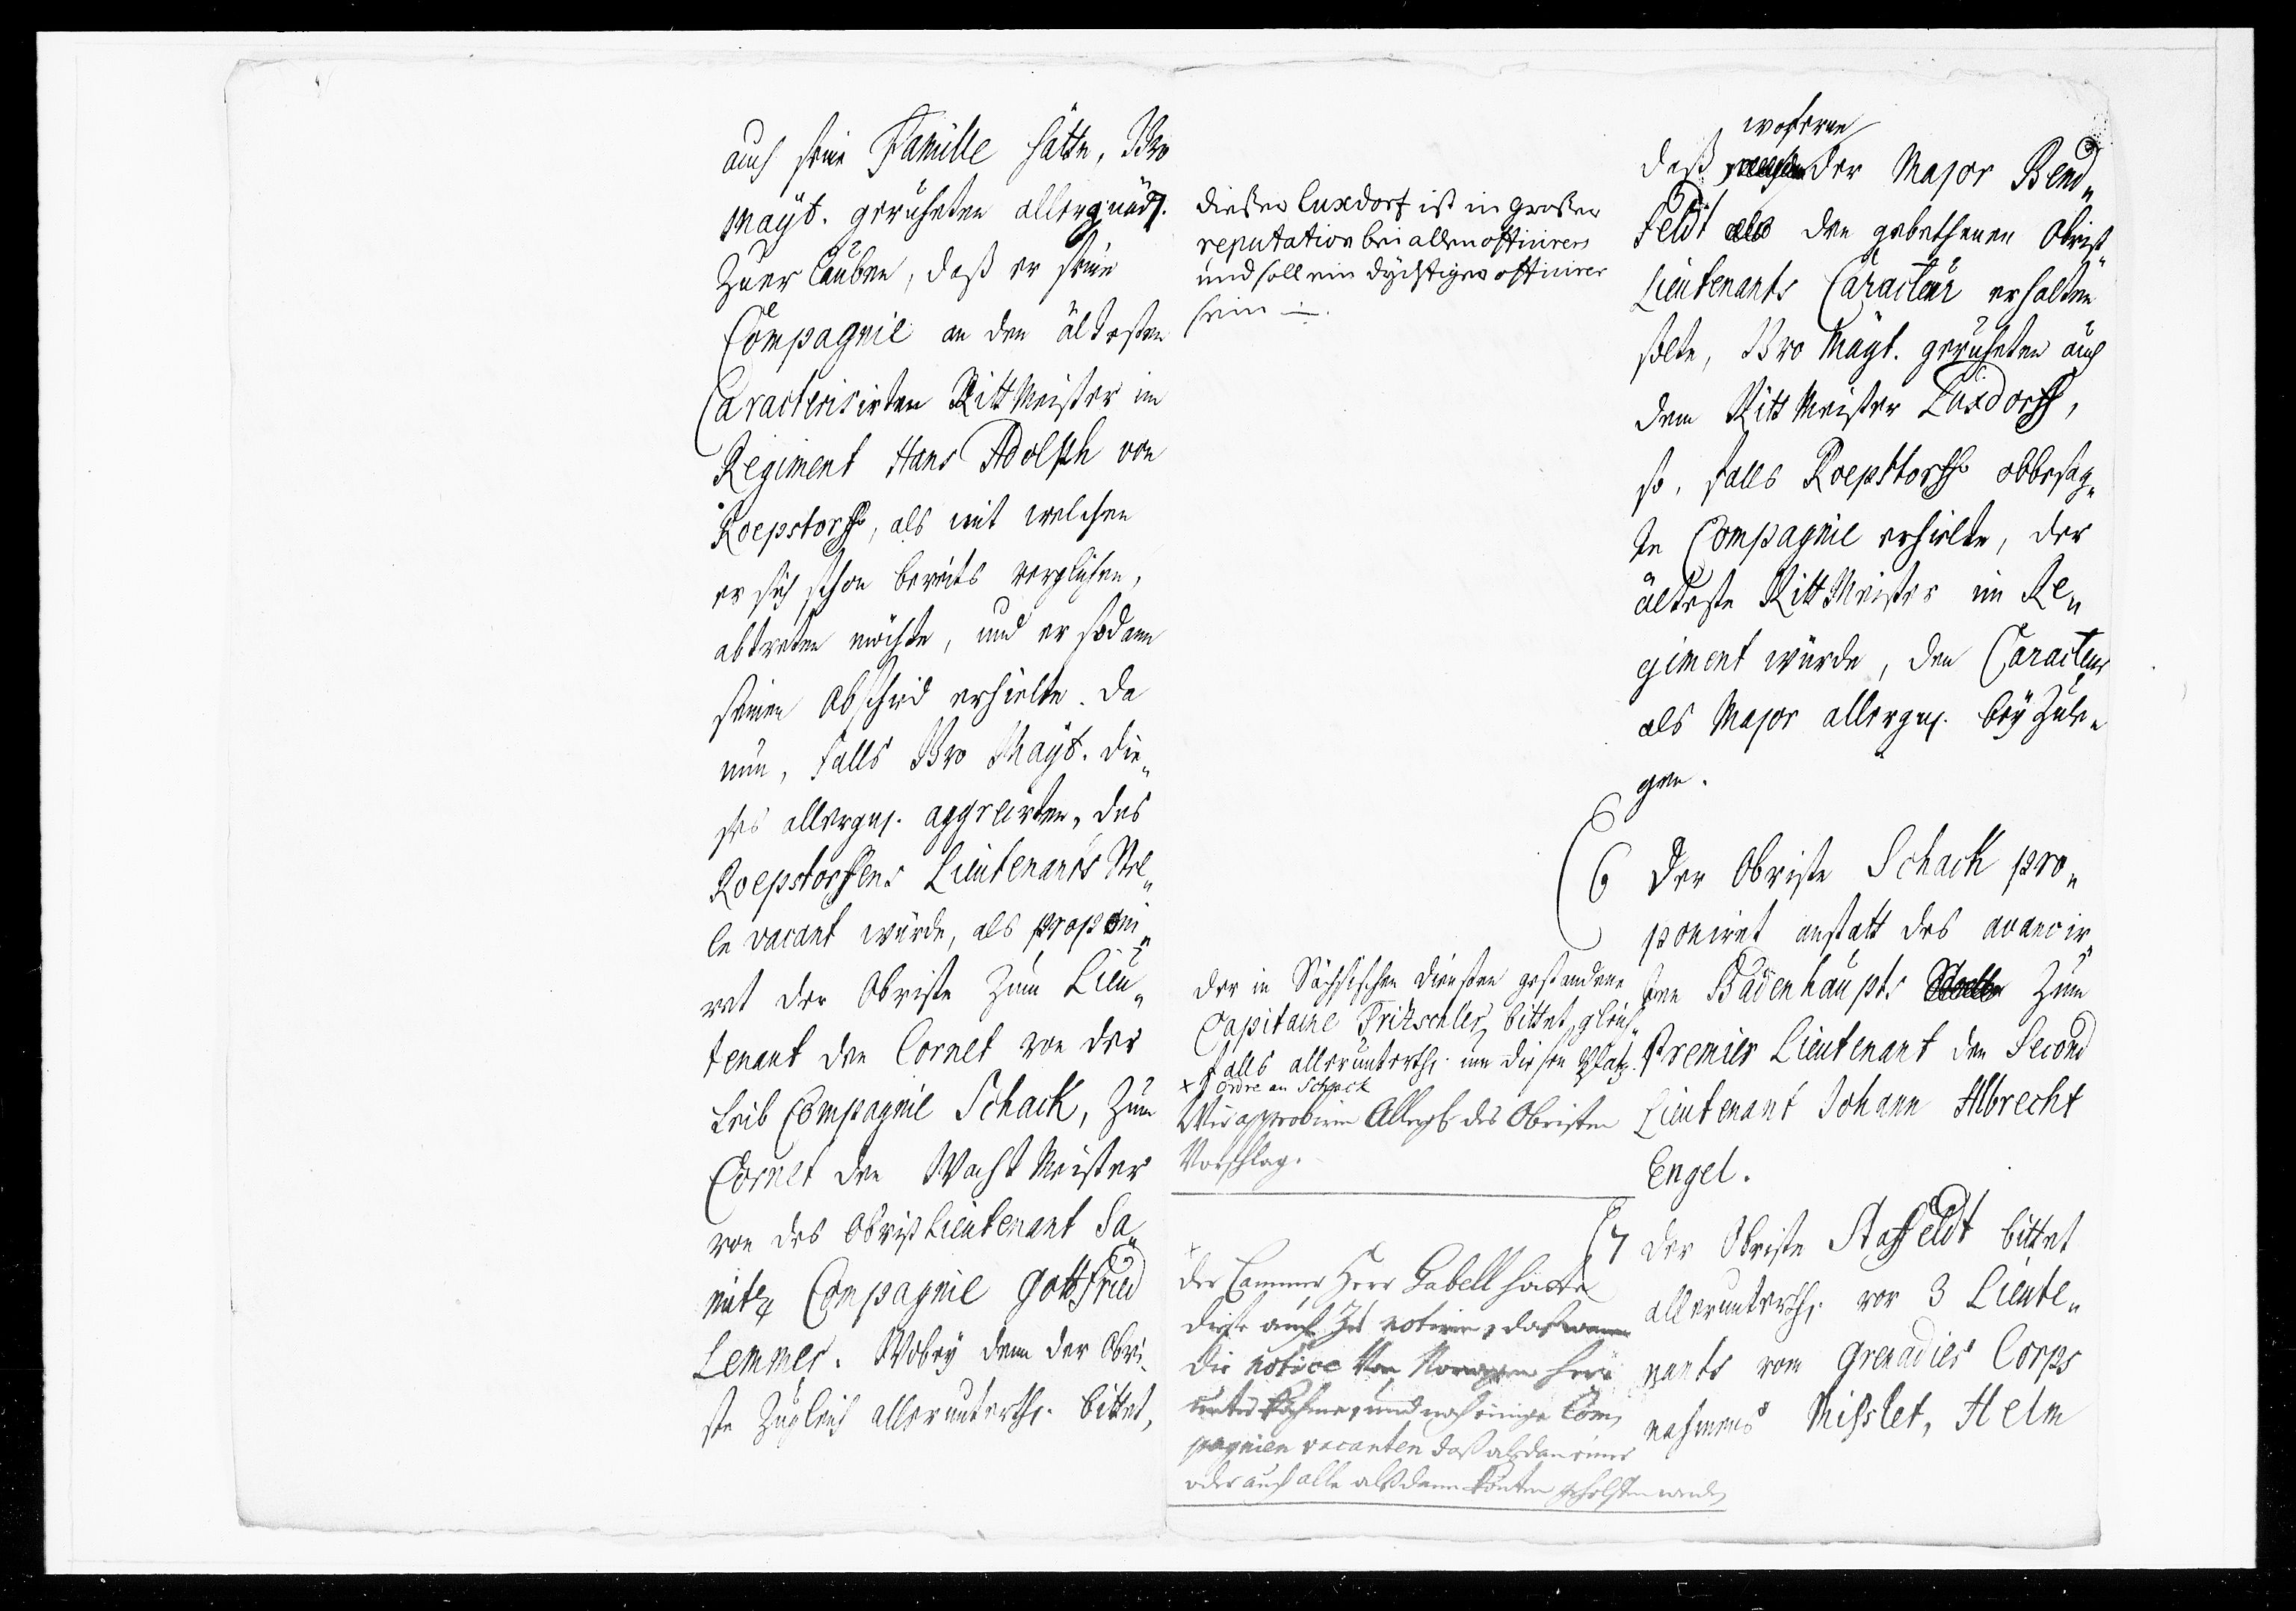 auch seine Famille hätte, Ihro
Mayt. geruheten allergnäd.
zuerlauben, daß er seine
Compagnie an den ältesten
Caracterisirten RittMeister im
Regiment Hans Adolph von
Roepstorff, als mit welchen
er sich schon bereits verglichen,
abtreten möchte, und er sodann
seinen Abschied erhielte. Da
nun, falls Ihro Mayt. die„
ses allergn. aggreirten, des
Roepstorffens Lieutenants Stel„
le vacant würde, als proponi„
ret der Obriste zum Lieu„
tenant den Cornet von der
Leib Compagnie Schack, zum
Cornet den WachtMeister
von des ObristLieutenant Sa„
mitz Compagnie Gottfried
Lemmer. Wobey denn der Obri„
ste zugleich allerunterth. bittet,
dießer Luxdorf ist in großer
reputation bei allen officirers
und soll ein dychtiger officirer
sein
Der in Sächsischen Diensten gestandene
Capitaine Fritzschler bittet gleich„
falls allerunterth. um diesen Platz.
x ordre an Schack
Wir approbiren Allergst des Obristen
Vorschlag.
x
Der Cammer Herr Gabell hätte
diese auch zu notiren, daß wann
die notice von Norwegen hier
und noch einige Com„
pagnien vacanten daß alsdan einer
oder auch alle alßdann könten geholffen werden
woferne
daß der Major Bend„
feldt den gebethenen Obrist„
Lieutenants Caracteur erhalten
solte, Ihro Mayt. geruheten auch
dem RittMeister Luxdorff,
so, falls Roepstorff obbesag„
te Compagnie erhielte, der
älteste RittMeister im Re„
giment würde, den Caracteur
als Major allergn. beyzule„
gen.
6 Der Obriste Schack pro„
poniret anstatt des avancir„
ten Badenhaupts zum
Premier Lieutenant den Second
Lieutenant Johann Albrecht
Engel.
7 Der Obriste Staffeldt bittet
allerunterth. vor 3 Lieute„
nants vom Grenadier Corps
nahmens Misslet, Helm